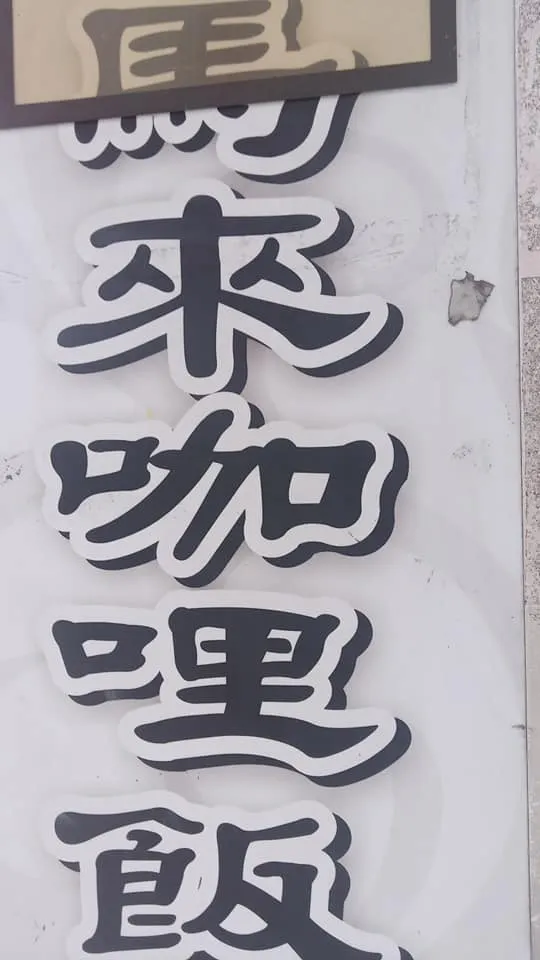 馬來咖哩飯